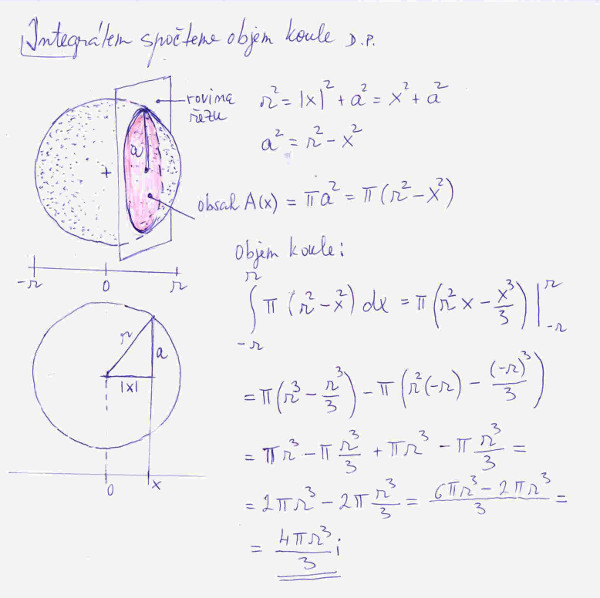 Integrálem spočteme objem koule D.P.
rovina
řezu
r² = |x|² + a² = x² + a²
a² = r² - x²
a
+
obsah A(x) = πa² = π(r² - x²)
-r 0 r
Objem koule:
∫_{-r}^{r} π (r² - x²) dx = π(r²x - x³/3)|_{-r}^{r}
r a
|x|
0 x
= π(r³ - r³/3) - π(r²(-r) - (-r)³/3)
= πr³ - π r³/3 + πr³ - π r³/3 =
= 2πr³ - 2π r³/3 = (6πr³ - 2πr³)/3 =
= 4πr³/3 ;